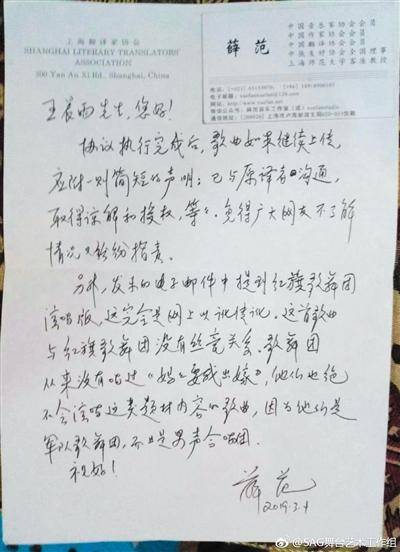 上海翻译家协会
SHANGHAI LITERARY TRANSLATORS'
ASSOCIATION
500 Yan An Xi Rd., Shanghai, China
薛范
中国音乐家协会会员
中国作家协会会员
中国翻译协会会员
中俄友好协会全国理事
上海师范大学客座教授
王辰雨先生，您好！
协议执行完成后，歌曲如果继续上传，
应附一则简短的声明：已与原译者沟通，
取得谅解和授权，等等。免得广大网友不了解
情况又纷纷指责。
另外，发来的电子邮件中提到红旗歌舞团
演唱版，这完全是网上以讹传讹。这首歌曲
与红旗歌舞团没有丝毫关系。歌舞团
从来没有唱过《妈妈要我出嫁》，他们也绝
不会演唱这类题材内容的歌曲，因为他们是
军队歌舞团，而且是男声合唱团。
祝好！
薛范
2019.3.4
@SAG舞台艺术工作组